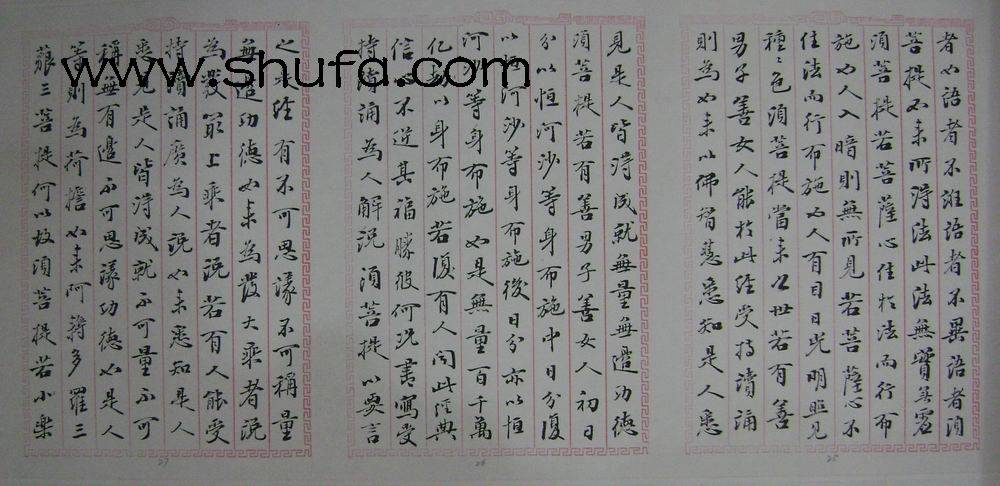 者如語者不誑語者不異語者須
菩提如来所得法此法無實無虛
須菩提若菩薩心住於法而行布
施如人入暗則無所見若菩薩心不
住法而行布施如人有目日光明照見
種種色須菩提當来之世若有善
男子善女人能於此經受持讀誦
則為如来以佛智慧悉知是人悉
見是人皆得成就無量無邊功德
須菩提若有善男子善女人初日
分以恒河沙等身布施中日分復
以恒河沙等身布施後日分亦以恒
河沙等身布施如是無量百千萬
亿劫以身布施若復有人聞此經典
信心不逆其福勝彼何況書寫受
持讀誦為人解説須菩提以要言
之是經有不可思議不可稱量
無邊功德如来為發大乘者説
為發最上乘者説若有人能受
持讀誦廣為人説如来悉知是人
悉見是人皆得成就不可量不可
稱無有邊不可思議功德如是人
等則為荷擔如来阿耨多羅三
藐三菩提何以故須菩提若小樂
www.shufa.com
25
26
27